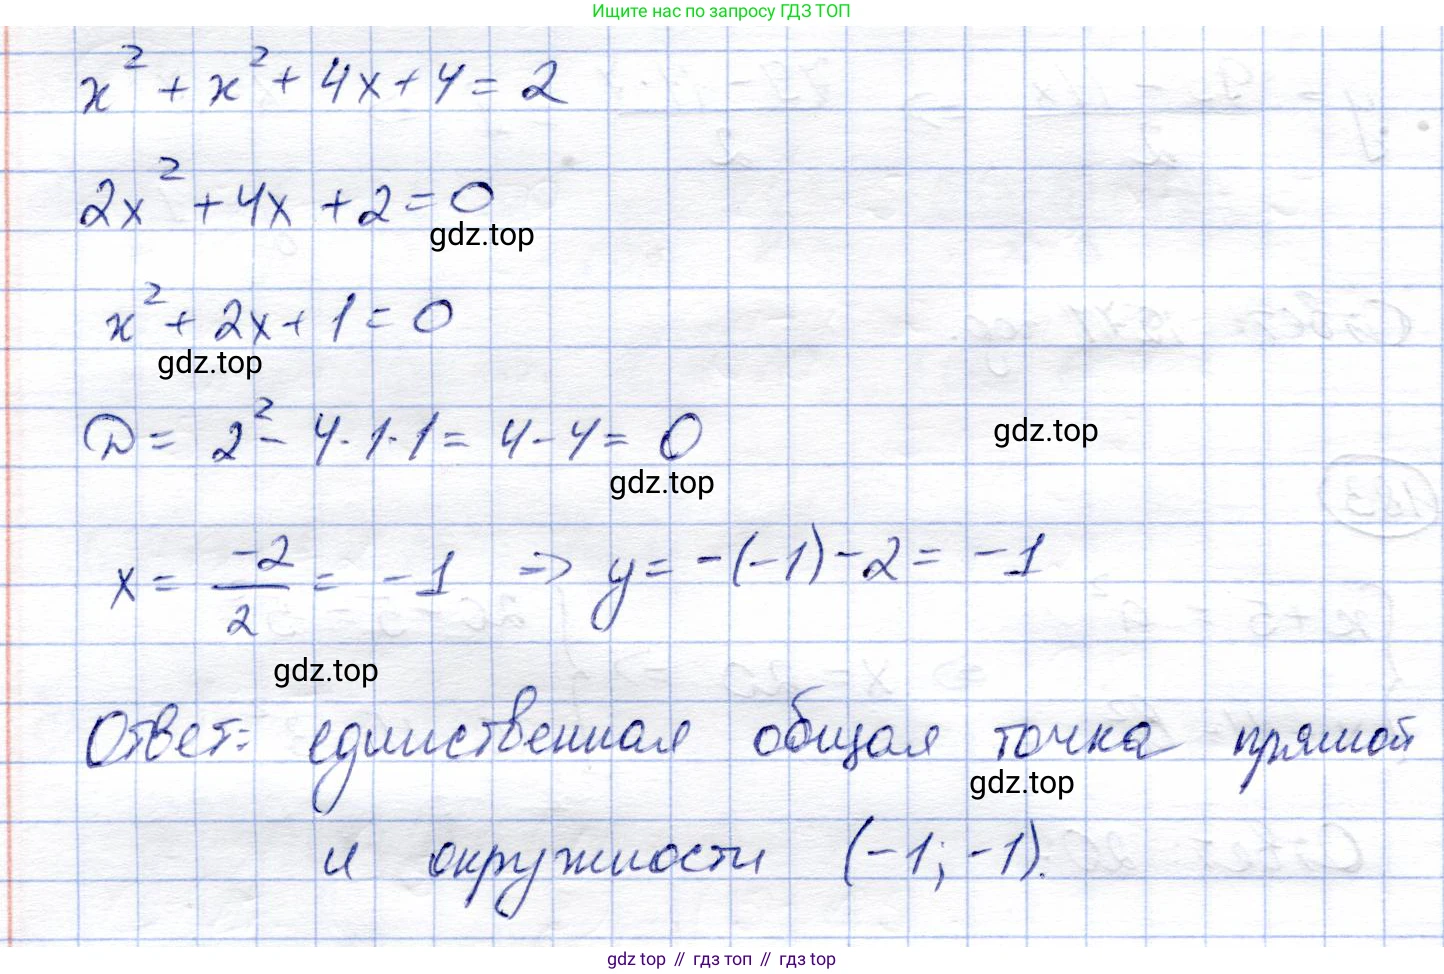 Ищите нас по запросу ГДЗ ТОП
x² + x² + 4x + 4 = 2
2x² + 4x + 2 = 0
gdz.top
x² + 2x + 1 = 0
gdz.top
D = 2² - 4·1·1 = 4 - 4 = 0
gdz.top
gdz.top
x = -2/2 = -1 => y = -(-1) - 2 = -1
gdz.top
Ответ: единственная общая точка прямой
gdz.top
и окружности (-1; -1).
gdz.top // гдз топ // gdz.top